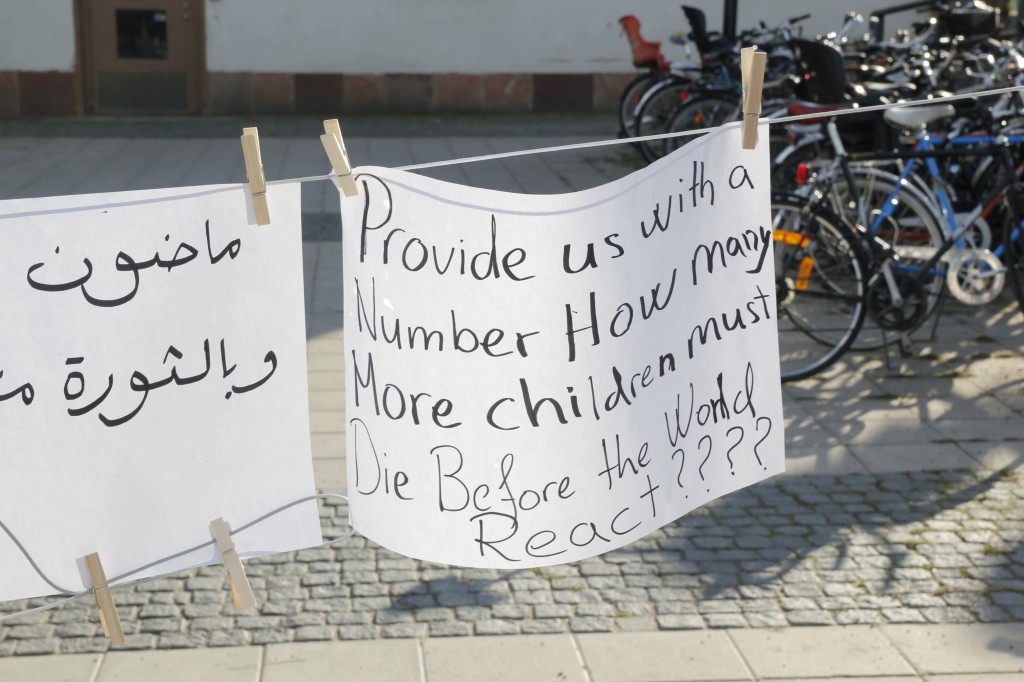 ماضون
وبالثورة
Provide us with a
Number How many
More children must
Die Before the World
React ????